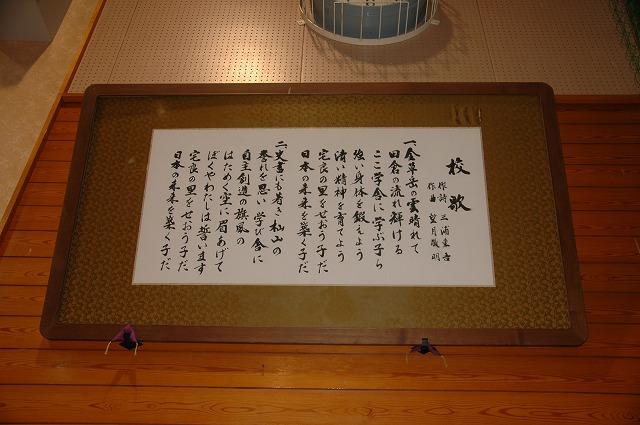 校歌
作詩 三浦重吉
作曲 望月敬明
一、金草岳の雲晴れて
田倉の流れ輝ける
ここ学舎に学ぶ子ら
強い身体を鍛えよう
清い精神を育てよう
宅良の里をせおう子だ
日本の未来を築く子だ
二、史書にも著き杣山の
誉れを思い学び舎に
自主創造の旗風の
はためく空に眉あげて
ぼくやわたしは誓います
宅良の里をせおう子だ
日本の未来を築く子だ